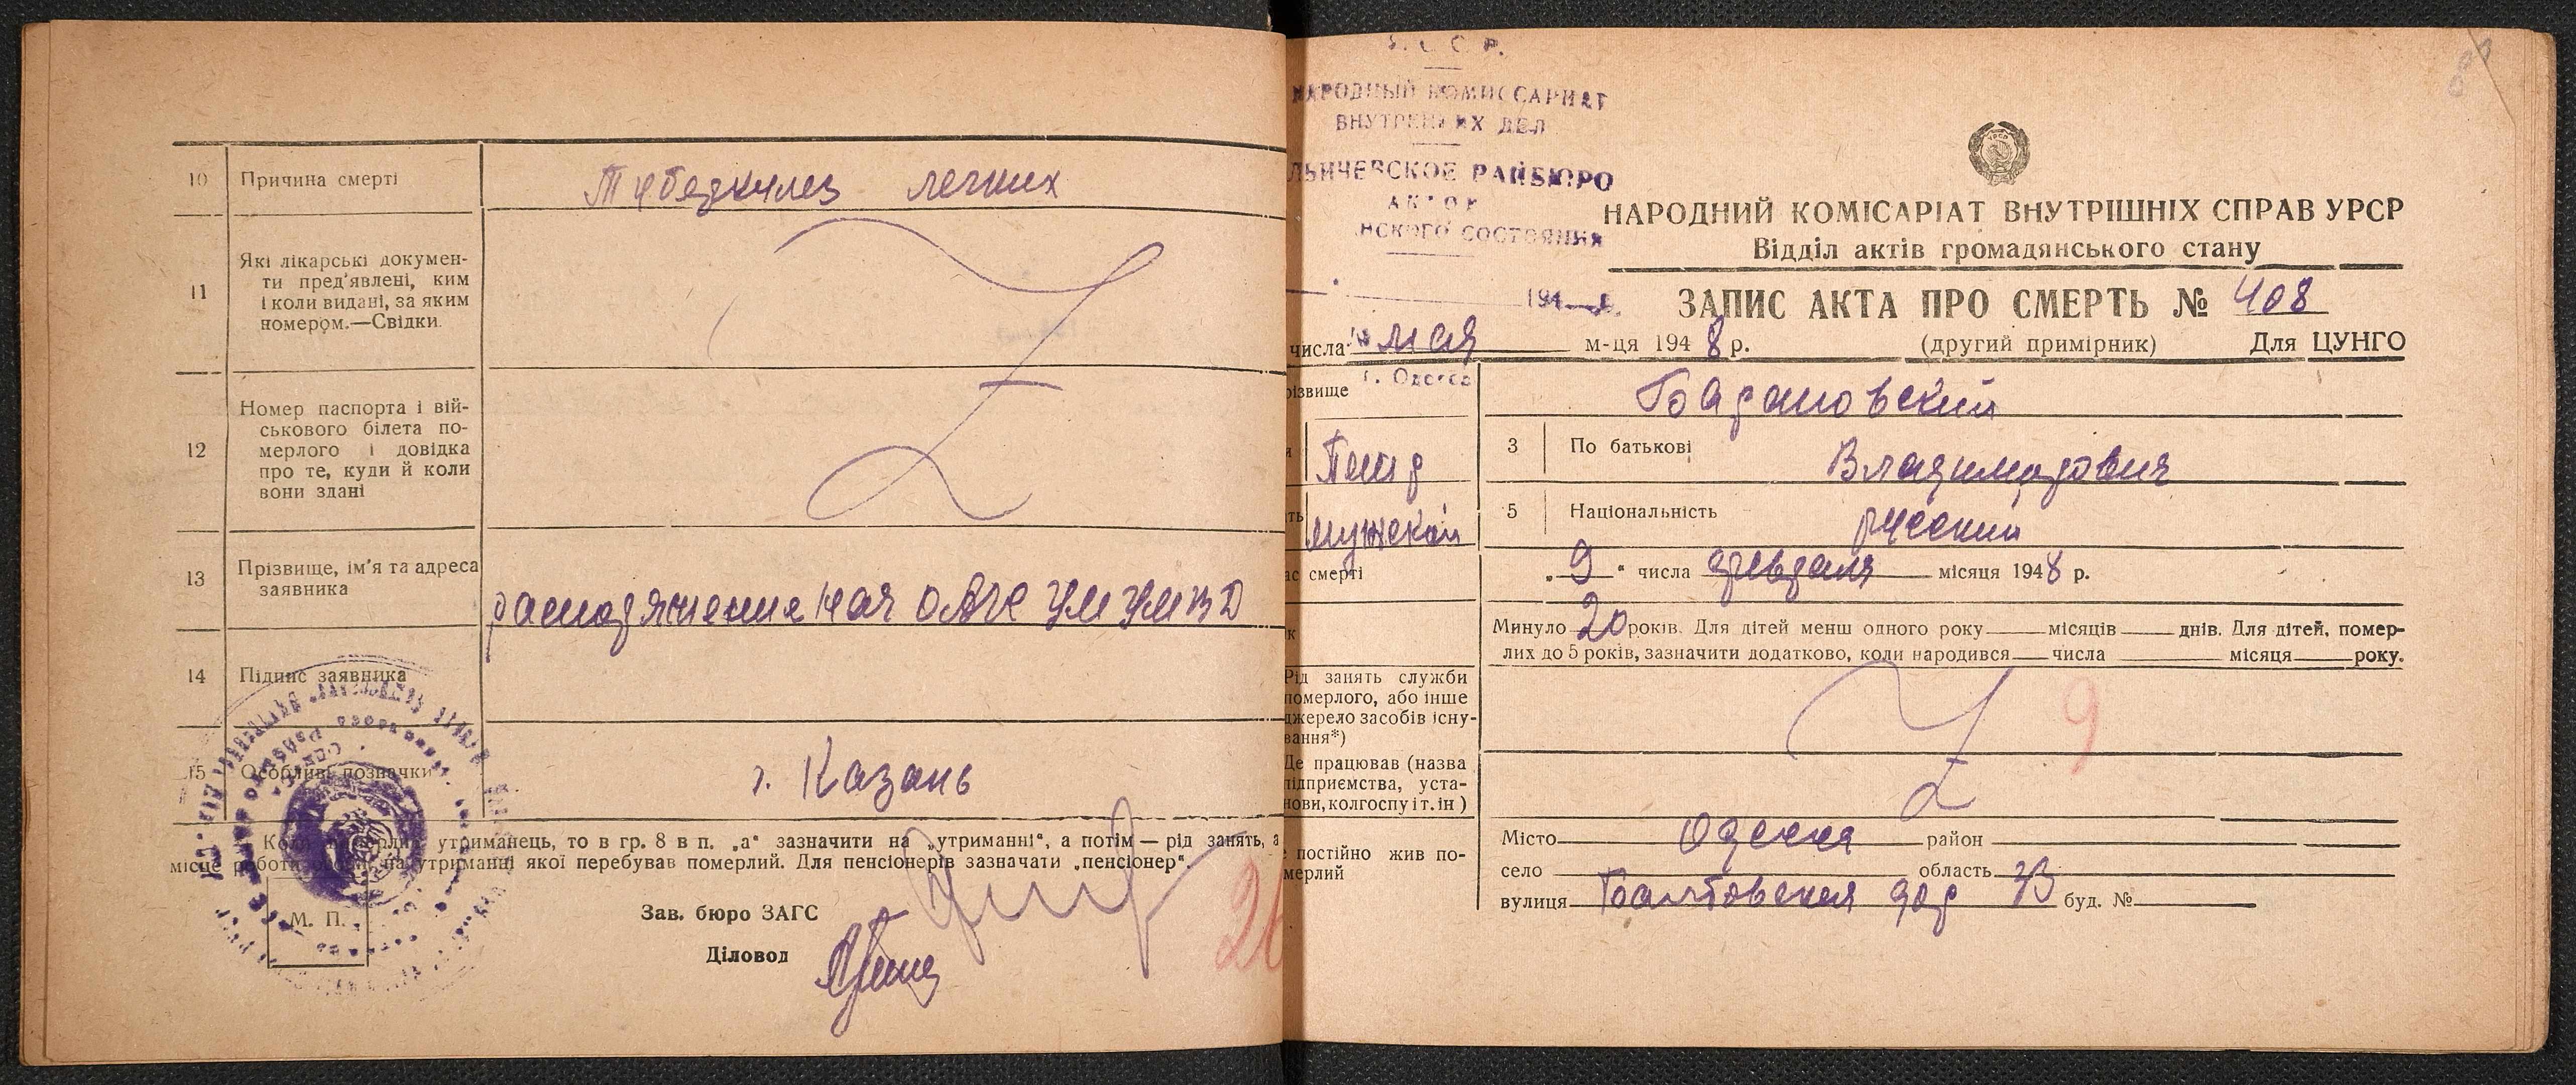 10 Причина смерті Туберкулез легких
11 Які лікарські докумен-
ти пред'явлені, ким
і коли видані, за яким
номером.—Свідки.
12 Номер паспорта і вій-
ськового білета по-
мерлого і довідка
про те, куди й коли
вони здані
13 Прізвище, ім'я та адреса
заявника
распоряжение нач ОАГС УМ УМВД
14 Підпис заявника
15 Особливі позначки г. Казань
утриманець, то в гр. 8 в п. „а" зазначити на „утриманні", а потім — рід занять, а
місце роботи утриманні якої перебував померлий. Для пенсіонерів зазначати „пенсіонер".
М. П.
Зав. бюро ЗАГС
Діловод
НАРОДНЫЙ КОМИССАРИАТ
ВНУТРЕННИХ ДЕЛ
ЛЬИЧЕВСКОЕ РАЙБЮРО
АКТОВ
НСКОГО СОСТОЯНИЯ
194
г. Одесса
НАРОДНИЙ КОМІСАРІАТ ВНУТРІШНІХ СПРАВ УРСР
Відділ актів громадянського стану
ЗАПИС АКТА ПРО СМЕРТЬ № 408
числа мая м-ця 1948 р. (другий примірник) Для ЦУНГО
різвище Бадановский
3 По батькові Владимирович
мужской 5 Національність русский
ас смерті „9" числа февраля місяця 1948 р.
Минуло 20 років. Для дітей менш одного року місяців днів. Для дітей, помер-
лих до 5 років, зазначити додатково, коли народився числа місяця року.
Рід занять служби
померлого, або інше
джерело засобів існу-
вання*)
9
Де працював (назва
підприємства, уста-
нови, колгоспу і т. ін)
постійно жив по-
мерлий
Місто Одесса район
село область
вулиця Балтовская дор 33 буд. №